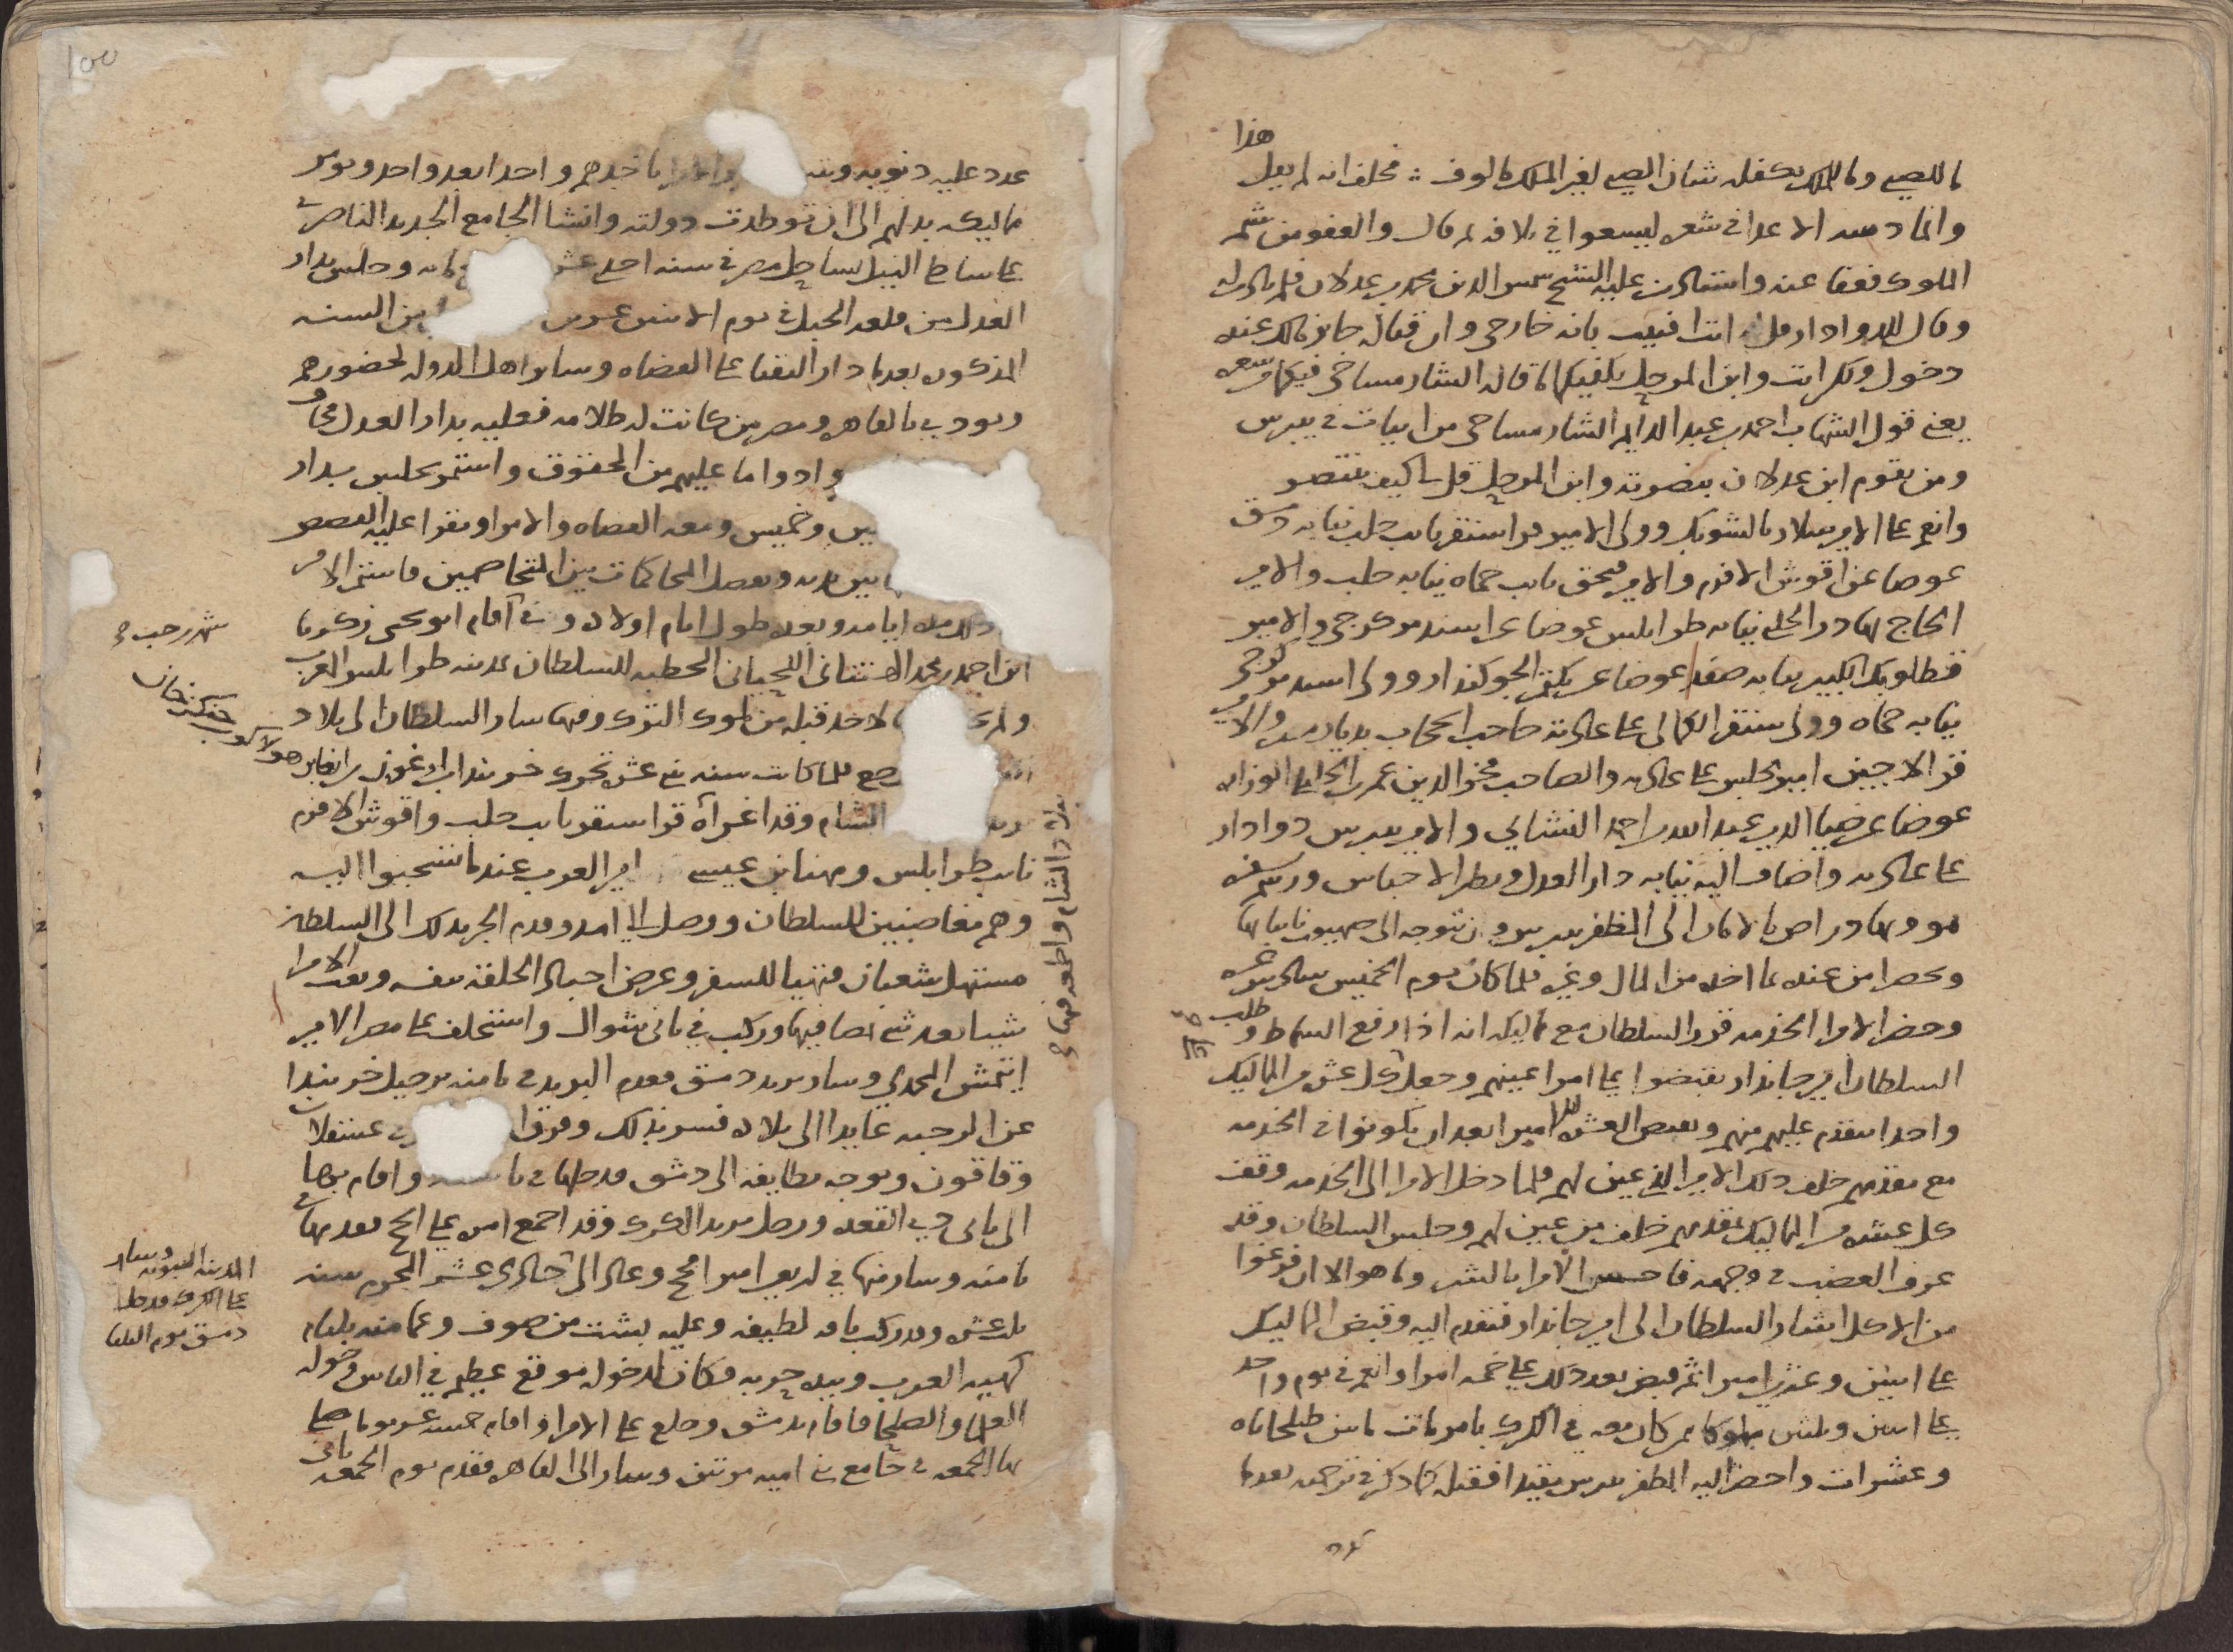 هذا
ما للصبي وما للملك يكفله شان الصبي لغير الملك مالوف فحلف انه لم يقل
وانما الاعدا في شعره ليسعوا في تلافه ثم قال والعفو من شيم
الملوك فعفا عنه واستاذن عليه الشيخ شمس الدين محمد بن عدلان فلم ياذن له
وقال للدوادار قل له انت افتيت بانه خارجي وان قتاله جايز مالك عنده
دخول ولكن انت وابن المرحل يكفيكما ما قاله الشارمساحي فيكما في شعره
يعني قول الشهاب احمد بن عبد الدايم الشارمساحي من ابيات في بيبرس
ومن يقوم ابن عدلان بنصرته وابن المرحل قل لي كيف ينتصر
وانعم على الامير سلار بالشوبك وولى الامير قراسنقر نايب حلب نيابه دمشق
عوضا عن اقوش الافرم والامير قبجق نايب حماه نيابه حلب والامير
الحاج بهادر الحلبي نيابه طرابلس عوضا عن اسندمر كرجي والامير
قطلوبك الكبير نيابه صفد عوضا عن بكتمر الجوكندار وولى اسندمر كرجي
نيابه حماه وولى سنقر الكمالي على عادته حاجب الحجاب بديار مصر والامير
قرالاجين امير مجلس على عادته والصاحب فخر الدين عمر بن الخليلي الوزاره
عوضا عن ضيا الدين عبد الله بن احمد النشائي والامير بيبرس دوادار
على عادته واضاف اليه نيابه دار العدل ونظر الاحباس ورسم بسفره
هو وبهادراص بالامان الى المظفر بيبرس وان يتوجه الى صهيون نايبا بها
ويحضرا من عنده ما اخده من المال وغيره فلما كان يوم الخميس سادس عشره
وحضر الامرا الخدمه قرر السلطان مع مماليكه انه اذا رفع السماط وطلب
السلطان امير جاندار يقبضوا على امرا عينهم وجعل لكل عشره من المماليك
واحدا يتقدم عليهم منهم وبعض العشره لكل امير بعد ان يكونوا في الخدمه
مع مقدمهم خلف ذلك الامير الذي عين لهم فلما دخل الامرا الى الخدمه وقف
كل عشره من المماليك مقدمهم خلف من عين لهم وجلس السلطان وقد
عرف الغضب في وجهه فاحس الامرا بالشر وما هو الا ان فرغوا
من الاكل اشار السلطان الى امير جاندار فتقدم اليه وقبض المماليك
على اثنين وعشرين اميرا ثم قبض بعد ذلك على خمسه امرا وانعم في يوم واحد
على اثنين وثلثين مملوكا ممن كان معه في الكرك بامريات ما بين طبلخاناه
وعشرات واحضر اليه المظفر بيبرس مقيدا فقتله كما ذكر في ترجمته بعدما
عدد عليه ذنوبه ياخدهم واحدا بعد واحد ويومر
مماليكه بدلهم الى ان توطدت دولته وانشا الجامع الجديد الناصري
على شاطي النيل بساحل مصر في سنه احدى وجلس بدار
العدل من قلعه الجبل في يوم الاثنين من السنه
المذكوره بعدما دار النقبا على القضاه وساير اهل الدوله لحضورهم
ونودي بالقاهره ومصر من كانت له ظلامه فعليه بدار العدل
وادوا ما عليهم من الحقوق واستمر يجلس بدار
وخميس ومعه القضاه والامرا وتقرا عليه القصص
بين يديه وتفصل المحاكمات بين المتخاصمين فاستمر الامر
ذلك مده ايامه وبعده طول ايام اولاده وفي اقام ابو يحيى زكريا
ابن احمد بن محمد اللحياني الخطبه للسلطان بمدينه طرابلس الغرب
ولم لاحد قبله من ملوك الترك وفيها سار السلطان الى بلاد
رجع فلما كانت سنه ثني عشره تحرك خربندا بن ارغون بن ابغا بن هولاكو بن جنكز خان
الشام وقد اغراه قراسنقر نايب حلب واقوش الافرم
نايب طرابلس ومهنا بن عيسى امير العرب عندما تسحبوا اليه
وهم مغاضبين للسلطان ووصل الى امد وقدم الخبر بذلك الى السلطان
مستهل شعبان فتهيا للسفر وعرض اجناد الحلقه بنفسه ونفق الامرا
شيا بعد شي وركب في ثاني شوال واستخلف على مصر الامير
ايتمش المحمدي وسار يريد دمشق فقدم البريد في ثامنه برحيل خربندا
عن الرحبه عايدا الى بلاده فسر بذلك وفرق عسقلان
وقاقون وتوجه بطايفه الى دمشق فدخلها في واقام بها
الى ثاني دي القعده ورحل يريد الكرك وقد اجمع امره على الحج فقدمها في
ثامنه وسار منها في اربعين اميرا فحج وعاد الى حادي عشر المحرم سنه
ثلث عشره وقد ركب ناقه لطيفه وعليه بشت من صوف وعمامته بلثام
كهيئه العرب وبيده حربه فكان لدخوله موقع عظيم في الناس وخرج له
العلما والصلحا فاقام بدمشق وخلع على الامرا واقام خمسه عشر يوما صلى
بها الجمعه في جامع بني اميه مرتين وسار الى القاهره فقدم يوم الجمعه ثاني
شهر رجب
بلاد الشام واطمعه فيها
المدينه النبويه وسار
على الكرك فدخل
دمشق يوم الثلثا